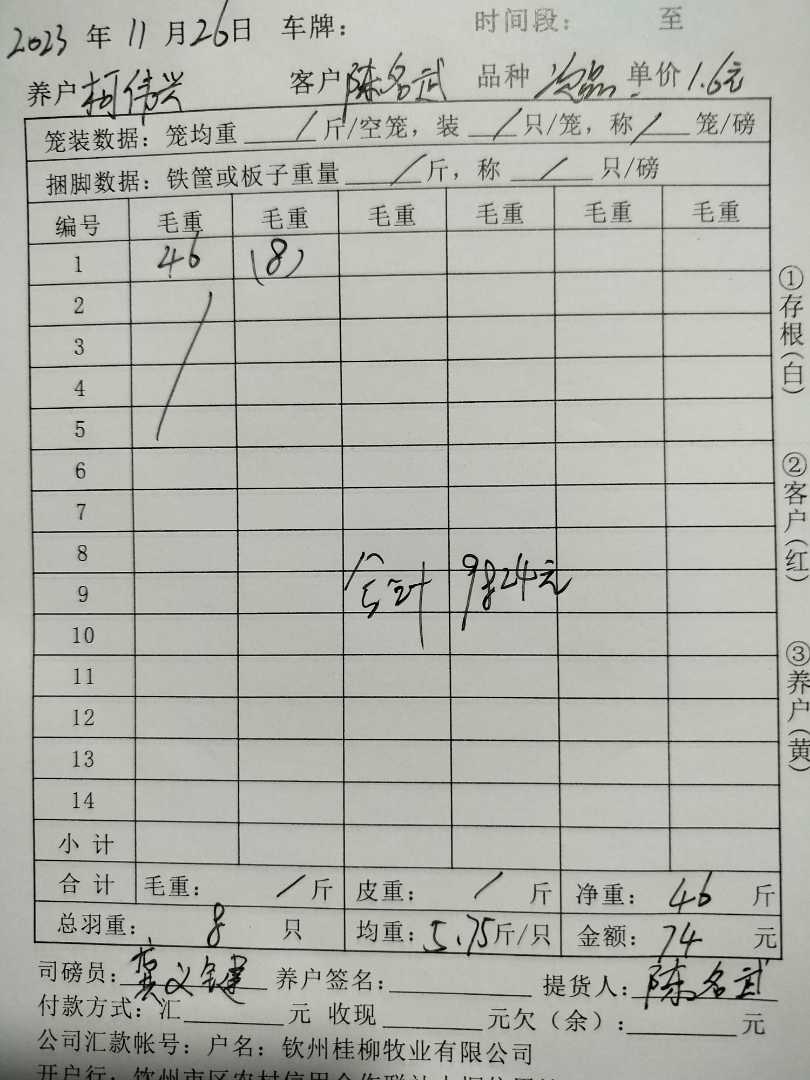 2023 年 11 月 26 日 车牌: 时间段: 至
养户 柯伟兴 客户 陈名武 品种 次品 单价 1.6元
笼装数据: 笼均重 / 斤/空笼, 装 / 只/笼, 称 / 笼/磅
捆脚数据: 铁筐或板子重量 / 斤, 称 / 只/磅
编号 毛重 毛重 毛重 毛重 毛重 毛重
1 46 (8)
2
3
4
5
6
7
8
9 合计 9824元
10
11
12
13
14
小 计
合 计 毛重: / 斤 皮重: / 斤 净重: 46 斤
总羽重: 8 只 均重: 5.75 斤/只 金额: 74 元
司磅员: 养户签名: 提货人: 陈名武
付款方式: 汇 元 收现 元欠(余): 元
公司汇款帐号: 户名: 钦州桂柳牧业有限公司
①存根(白)
②客户(红)
③养户(黄)